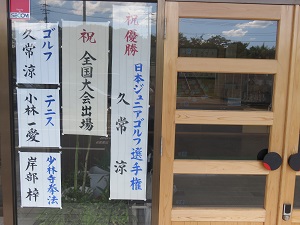 祝優勝
日本ジュニアゴルフ選手権
久常涼
祝
全国大会出場
ゴルフ
久常涼
テニス
小林一愛
少林寺拳法
岸部梓